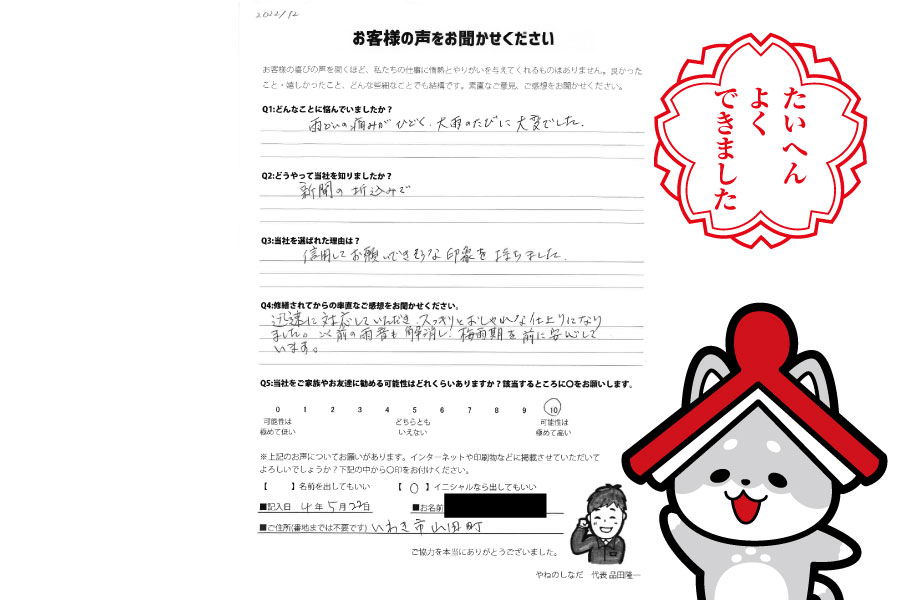 2022/12
お客様の声をお聞かせください
お客様の喜びの声を聞くほど、私たちの仕事に情熱とやりがいを与えてくれるものはありません。良かった
こと・嬉しかったこと、どんな些細なことでも結構です。素直なご意見、ご感想をお聞かせください。
Q1:どんなことに悩んでいましたか?
雨どいの痛みがひどく、大雨のたびに大変でした。
Q2:どうやって当社を知りましたか?
新聞の折込みで
Q3:当社を選ばれた理由は?
信用してお願いできそうな印象を持ちました。
Q4:修繕されてからの率直なご感想をお聞かせください。
迅速に対応していただき、スッキリとおしゃれな仕上りになり
ました。以前の雨音も解消し、梅雨期を前に安心して
います。
Q5:当社をご家族やお友達に勧める可能性はどれくらいありますか?該当するところに〇をお願いします。
0 1 2 3 4 5 6 7 8 9 10
可能性は極めて低い どちらともいえない 可能性は極めて高い
※上記のお声についてお願いがあります。インターネットや印刷物などに掲載させていただいて
よろしいでしょうか?下記の中から〇印をお付けください。
【 】名前を出してもいい 【 〇 】イニシャルなら出してもいい
■記入日 4年5月22日 ■お名前
■ご住所(番地までは不要です) いわき市山田町
ご協力を本当にありがとうございました。
やねのしなだ 代表 品田隆一
たいへん
よく
できました